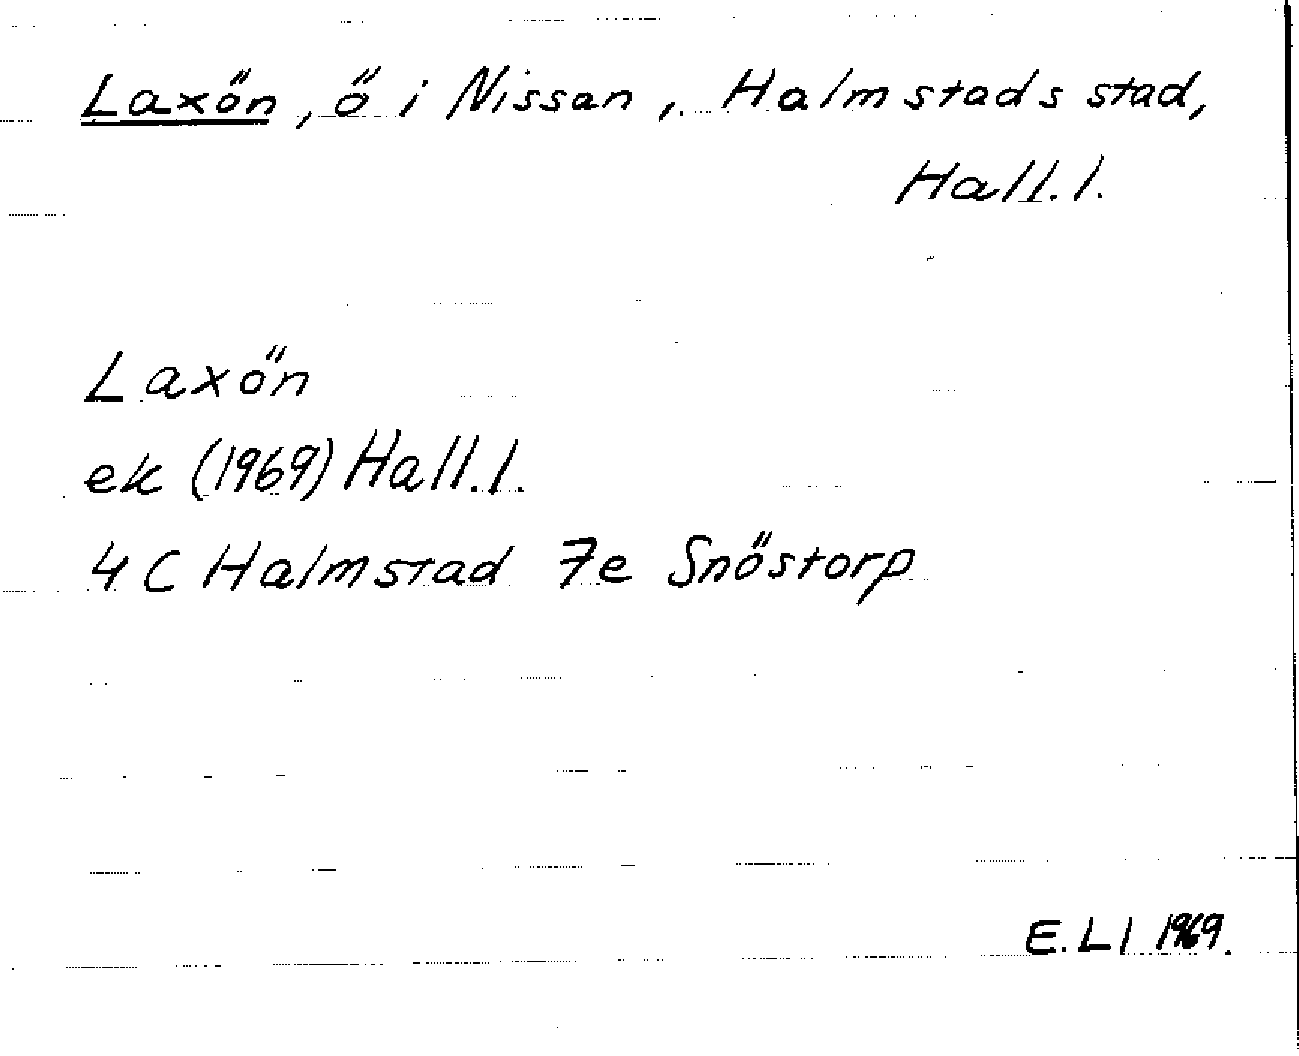 Laxön, ö i Nissan, Halmstads stad,
Hall. l.
Laxön
ek (1969) Hall. l.
4 C Halmstad 7e Snöstorp
E. Ll 1969.